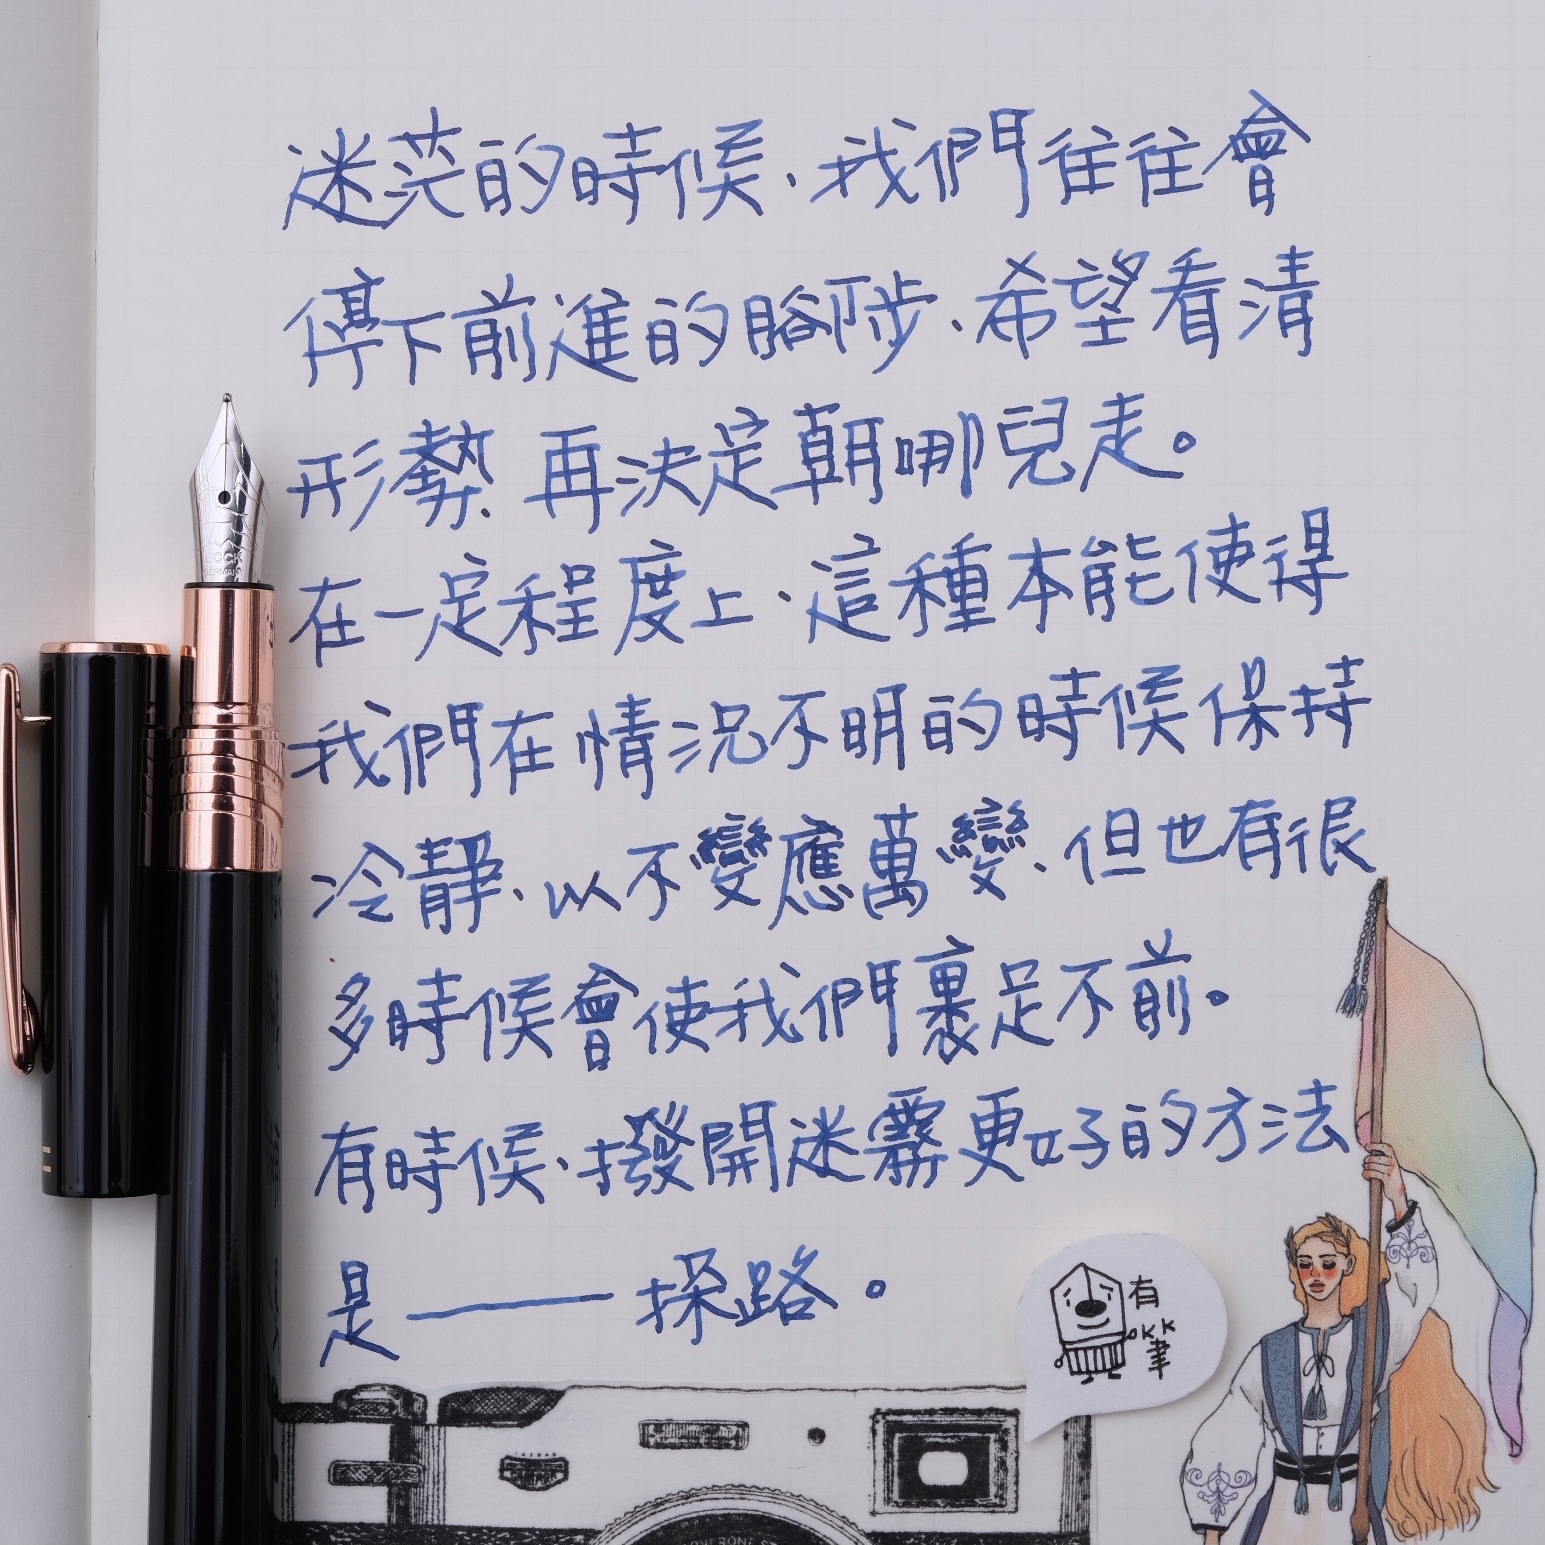 迷茫的時候、我們往往會
停下前進的腳步、希望看清
形勢 再決定朝哪兒走。
在一定程度上、這種本能使得
我們在情況不明的時候保持
冷靜、以不變應萬變、但也有很
多時候會使我們裹足不前。
有時候、撥開迷霧更好的方法
是——探路。
有
KK
聿